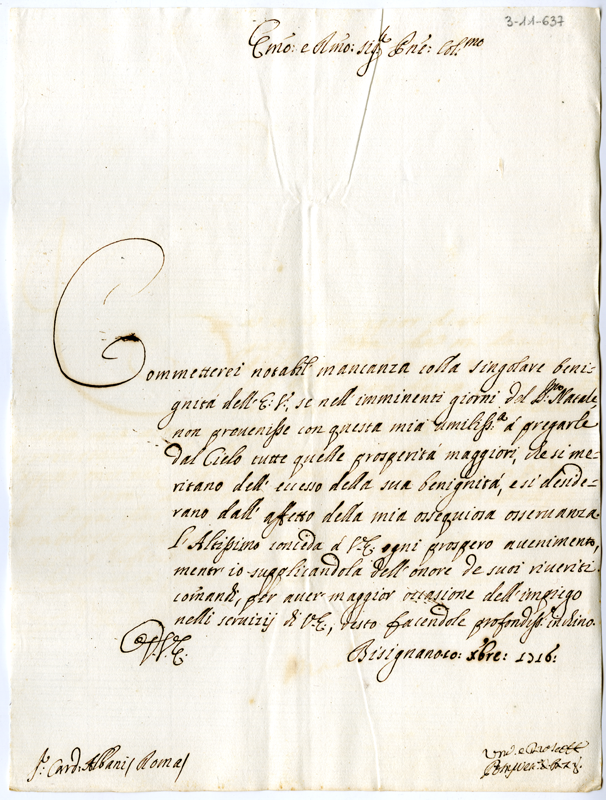 3-11-637
Emo: e Rmo: sigre Pne: Col.mo
Commetterei notabil mancanza colla singolare beni-
gnitá dell'E: V., se nell'imminenti giorni del S.mo Natale
non provenisse con questa mia umiliss.a á pregarle
dal Cielo tutte quelle prosperitá maggiori, che si me-
ritano dell'ecesso della sua benignitá, e si deside-
rano dall'affetto della mia ossequiosa osservanza.
L'Altissimo conceda á V.E. ogni prospero avvenimento,
mentr'io supplicandola dell'onore de suoi riveriti
comandi, per aver maggior occasione dell'impiego
nelli servizij di V.E., resto facendole profondiss.o inchino.
V.E. Bisignano 10: xbre: 1716:
Sr. Card. Albani / Roma /